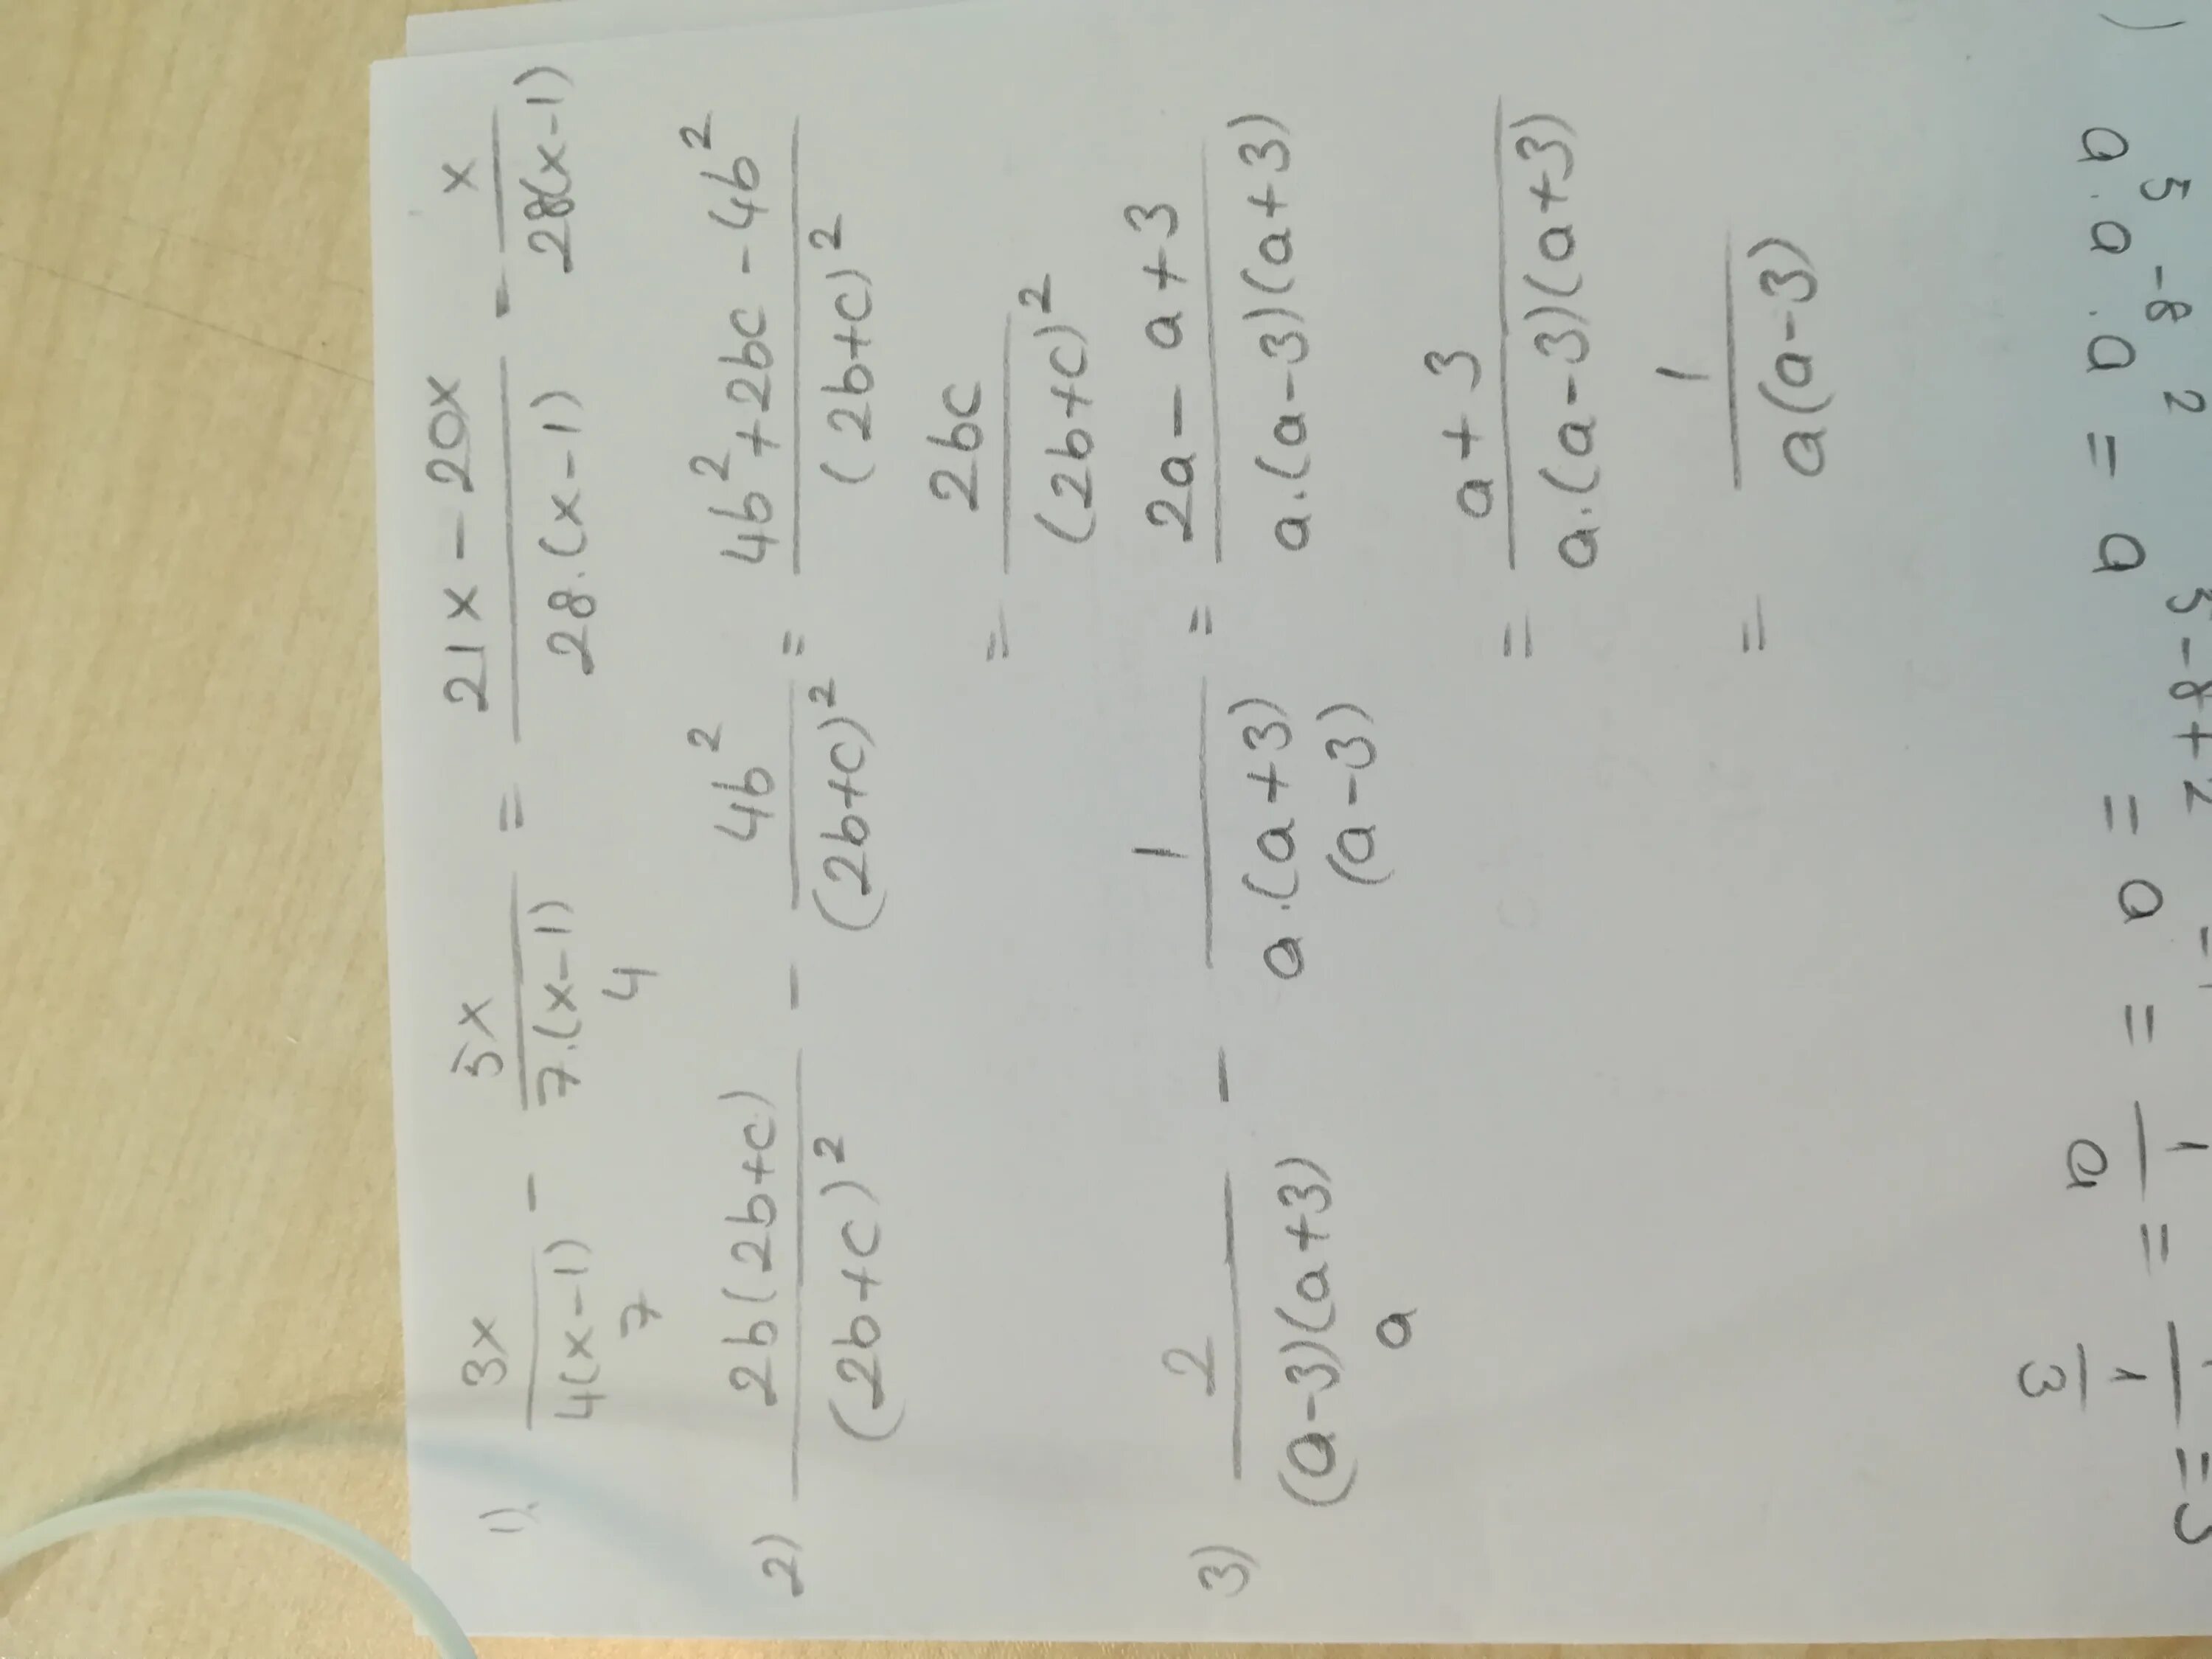 1) 3x / 4(x-1) - 5x / 7.(x-1) = 21x - 20x / 28.(x-1) - x / 28(x-1)
7 4
2) 2b(2b+c) / (2b+c)² - 4b² / (2b+c)² = 4b²+2bc-4b² / (2b+c)²
= 2bc / (2b+c)²
3) 2 / (a-3)(a+3) - 1 / a.(a+3) = 2a - a+3 / a.(a-3)(a+3)
a (a-3)
= a+3 / a.(a-3)(a+3)
= 1 / a(a-3)
) a⁵.a⁻⁸.a² = a⁵⁻⁸⁺² = a⁻¹ = 1 / a = 1 / 1/3 = 3